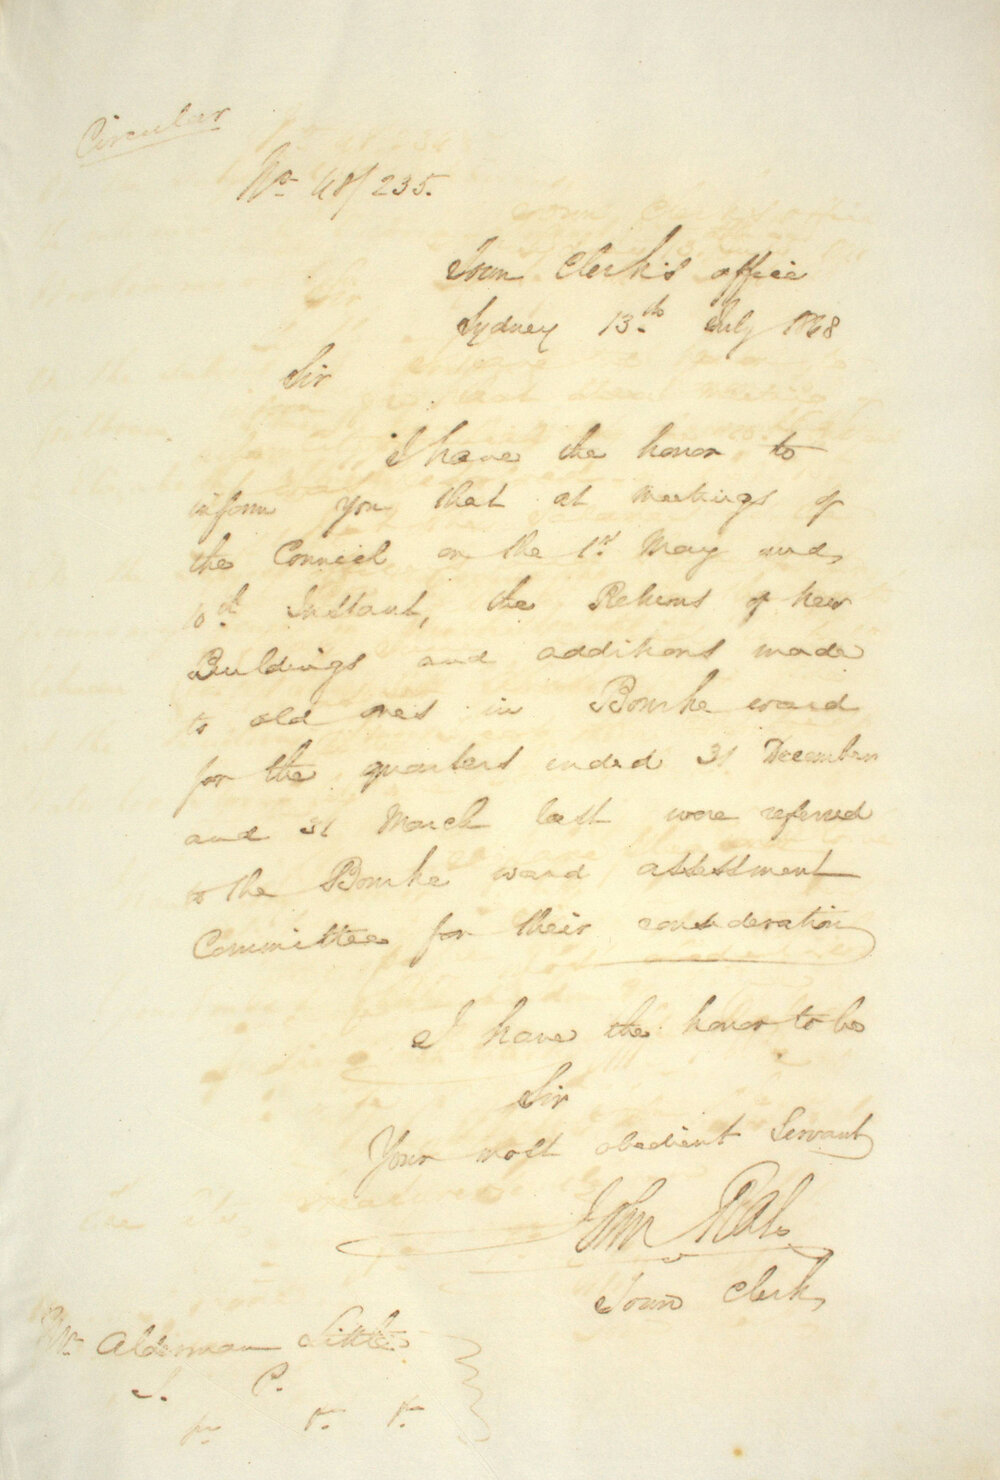 Circular
No. 48/235.
Town Clerk's office
Sydney 13th July 1848
Sir
I have the honor to
inform you that at meetings of
the Council on the 1st May and
10th Instant, the Returns of New
Buildings and additions made
to old ones in Bourke ward
for the quarters ended 31 December
and 31 March last were referred
to the Bourke ward assessment
Committee for their consideration
I have the honor to be
Sir
Your most obedient Servant
John Rae
Town Clerk
Mr Alderman Little
J. P.